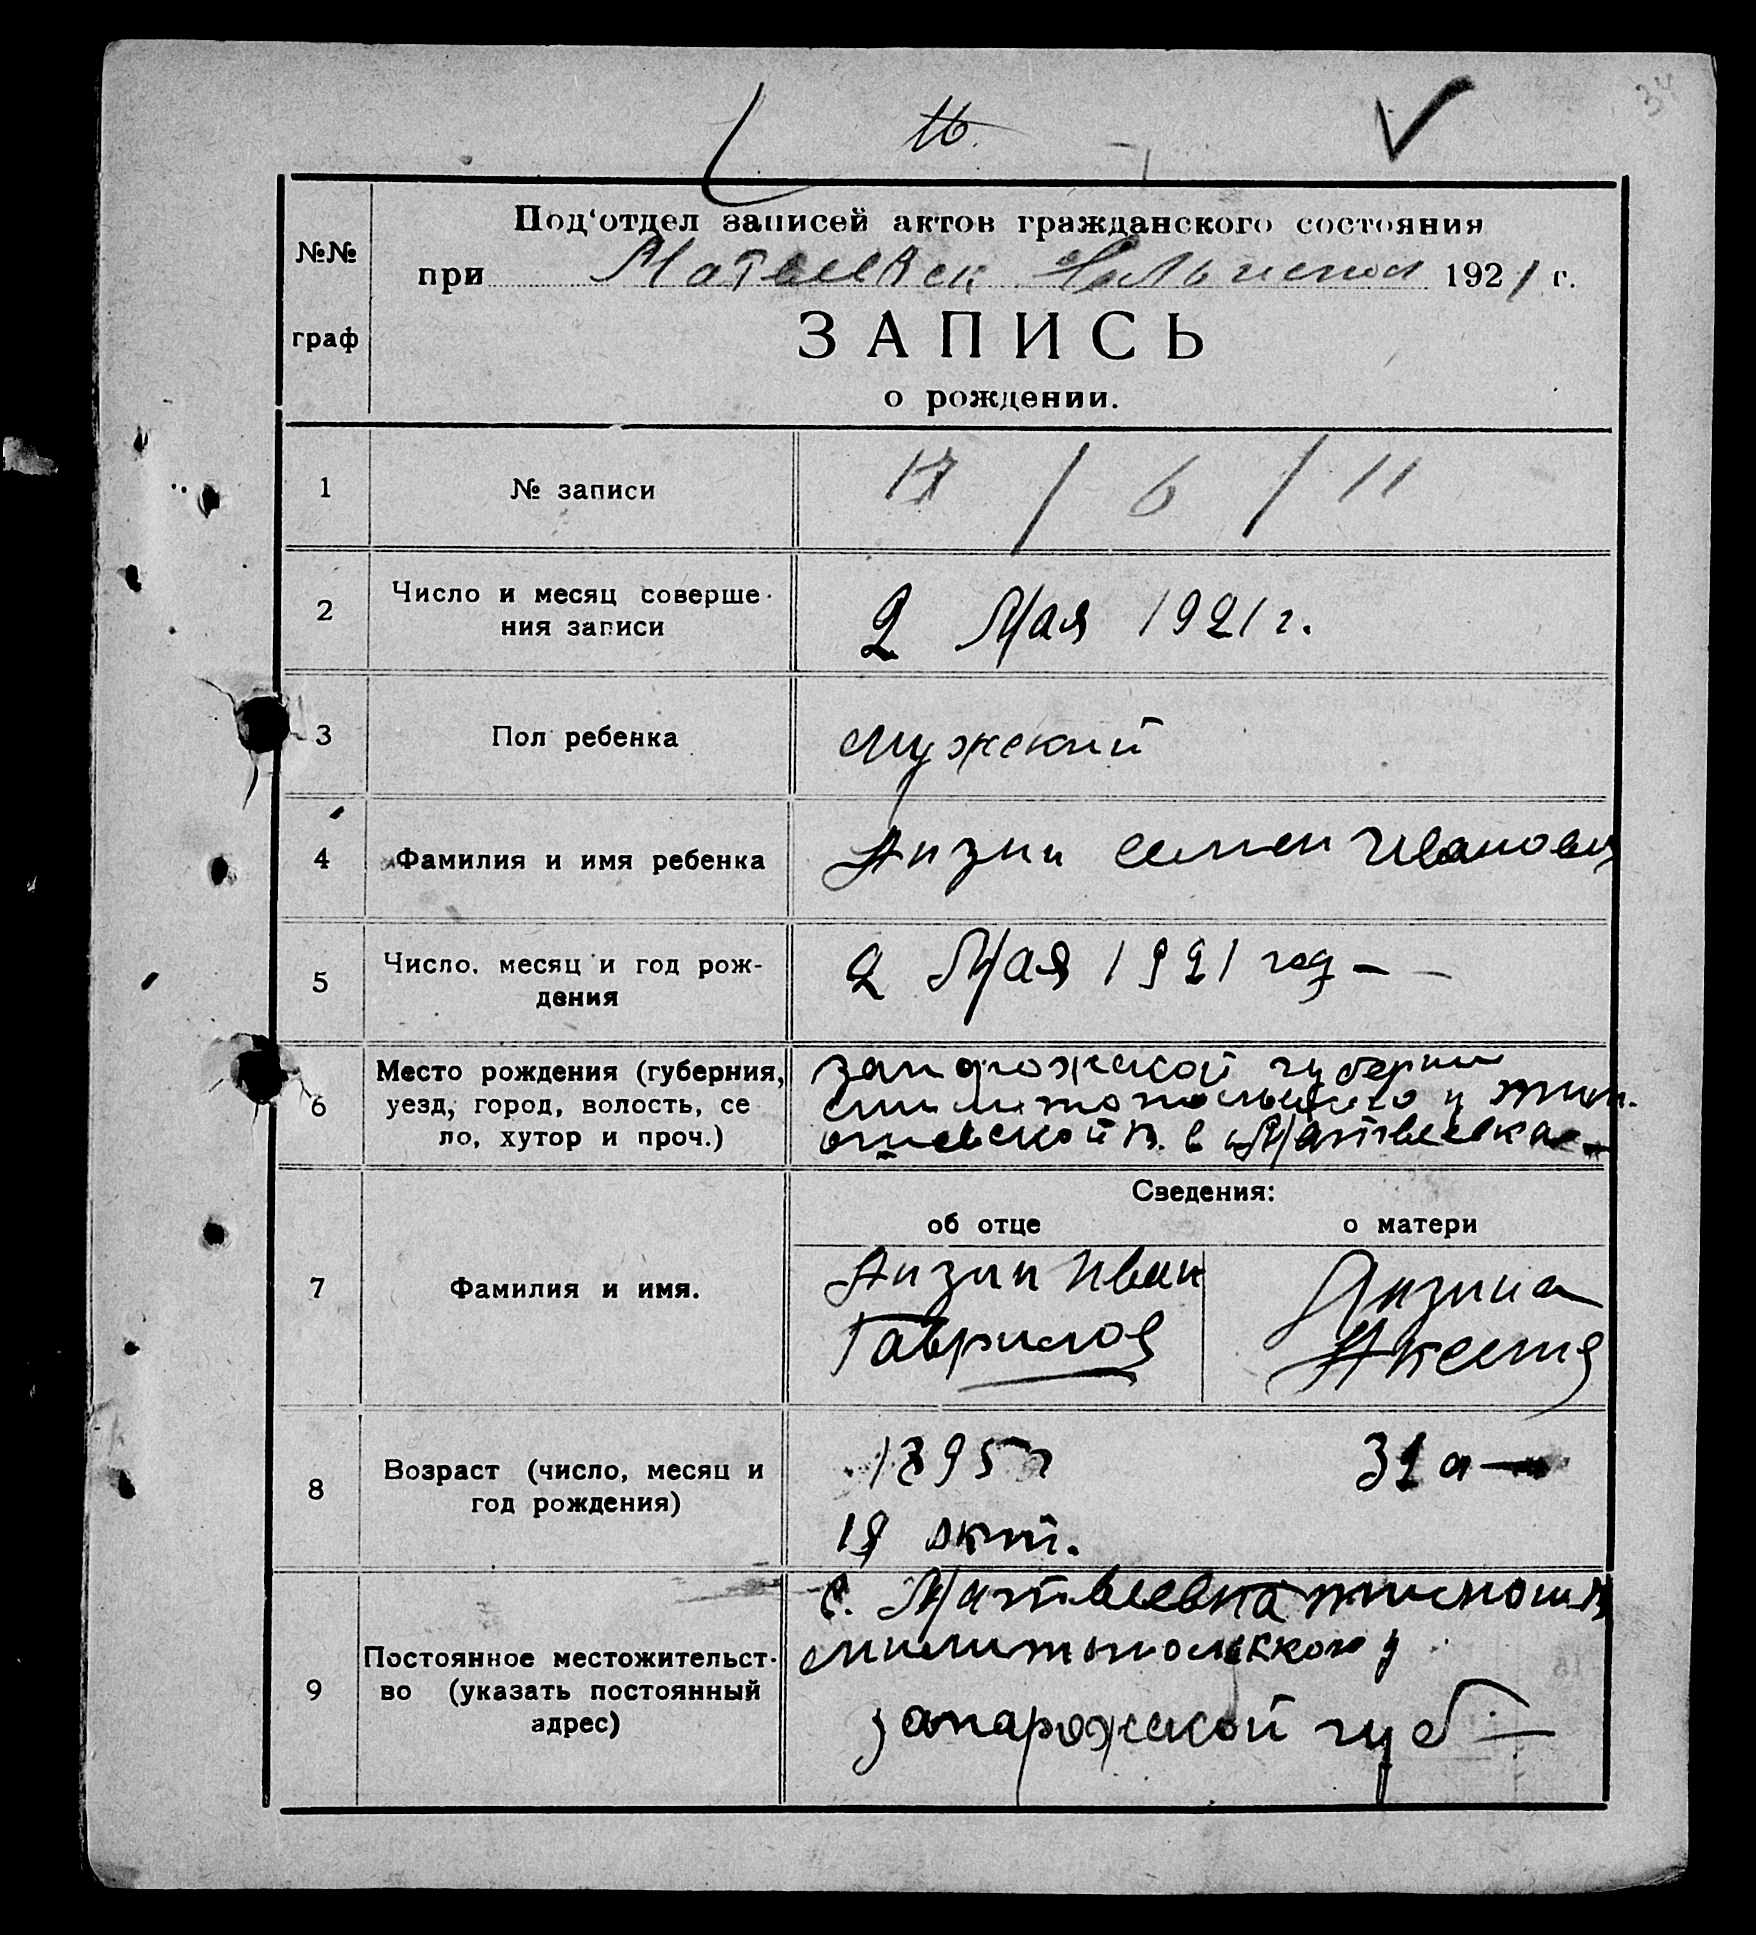 34
16
Под'отдел записей актов гражданского состояния
№№
при Матвеевск 1921 г.
граф
ЗАПИСЬ
о рождении.
1 № записи 17 / 6 / 11
2 Число и месяц соверше- 2 Мая 1921 г.
ния записи
3 Пол ребенка мужский
4 Фамилия и имя ребенка Анзин Семен Иванович
5 Число, месяц и год рож- 2 Мая 1921 год —
дения
6 Место рождения (губерния, запорожской губернии
уезд, город, волость, се
ло, хутор и проч.) в. с Матвеевка
Сведения:
об отце о матери
7 Фамилия и имя. Анзин Иван Анзина
Гаврилов Аксения
8 Возраст (число, месяц и 1895 г 31 а —
год рождения)
19 окт.
с. Матвеевка
9 Постоянное местожительст- у
во (указать постоянный запарожской губ —
адрес)